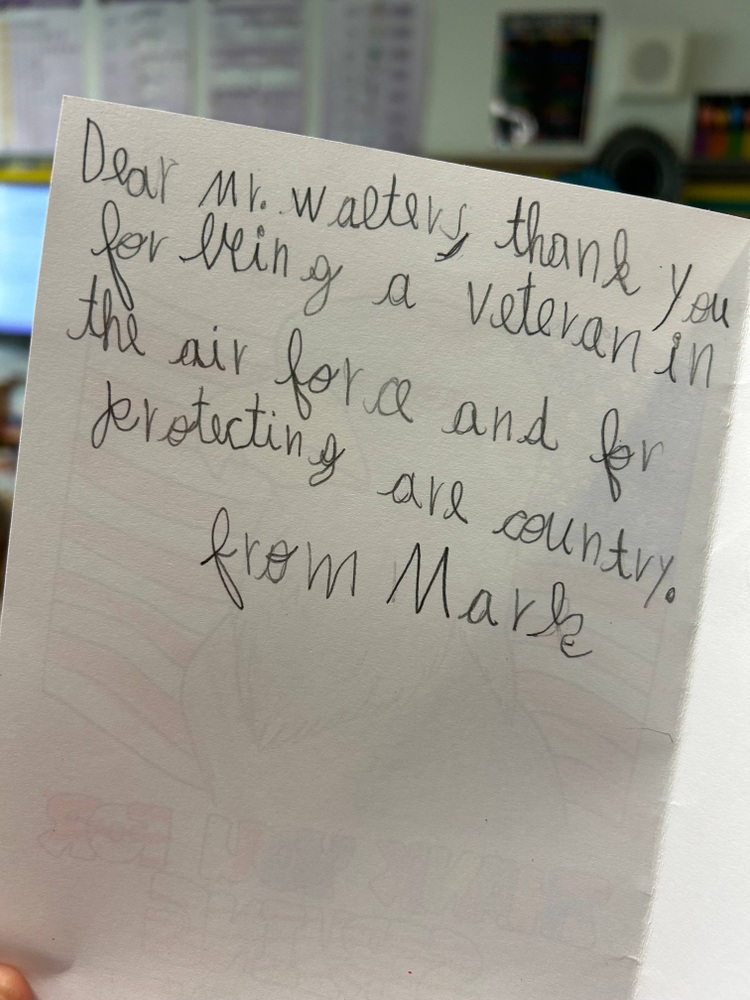 Dear Mr. Walters, thank you
for being a veteran in
the air force and for
protecting are country.
from Mark
THANK YOU FOR